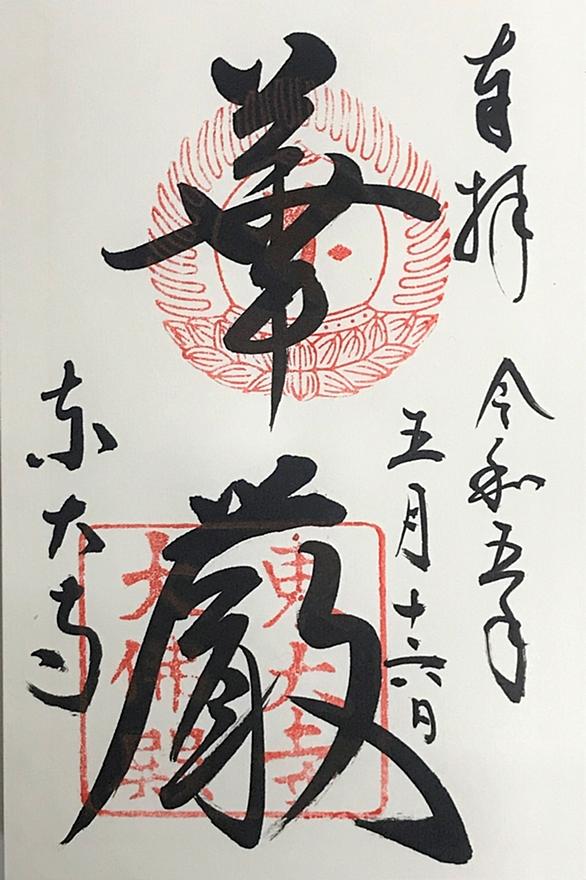 奉拝
令和五年
五月十六日
華厳
東大寺
大佛殿
東大寺